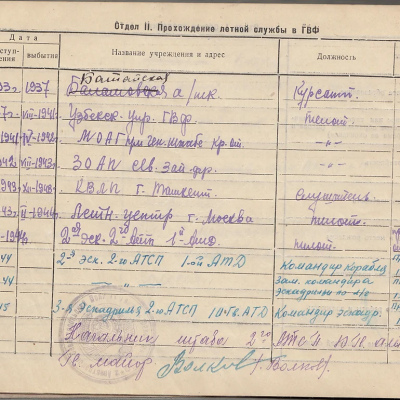 Отдел II. Прохождение летной службы в ГВФ
Дата
выбытия
Название учреждения и адрес
Должность
1937 Батайская а/шк. Курсант.
VIII-1941 Узбекск. упр. ГВФ. Пилот.
IV-1942 МОАГ при ген. штабе Кр. ар. -"-
1942 VIII-1943 ЗОАП сев. зап. фр. -"-
1943 XII-1943 КВЛП г. Ташкент. Слушатель.
II-1944 Летн. центр г. Москва Пилот.
2ой эск. 2го Пилот.
44 2-я эск. 2-го АТСП 1-ой АТД Командир Корабля
44 -"- Зам. командира эскадрильи
45 3-я Эскадрилья 2-го АТСП 10 Гв. АТД Командир эскадр.
Начальник штаба 2го
Гв. майор Волков